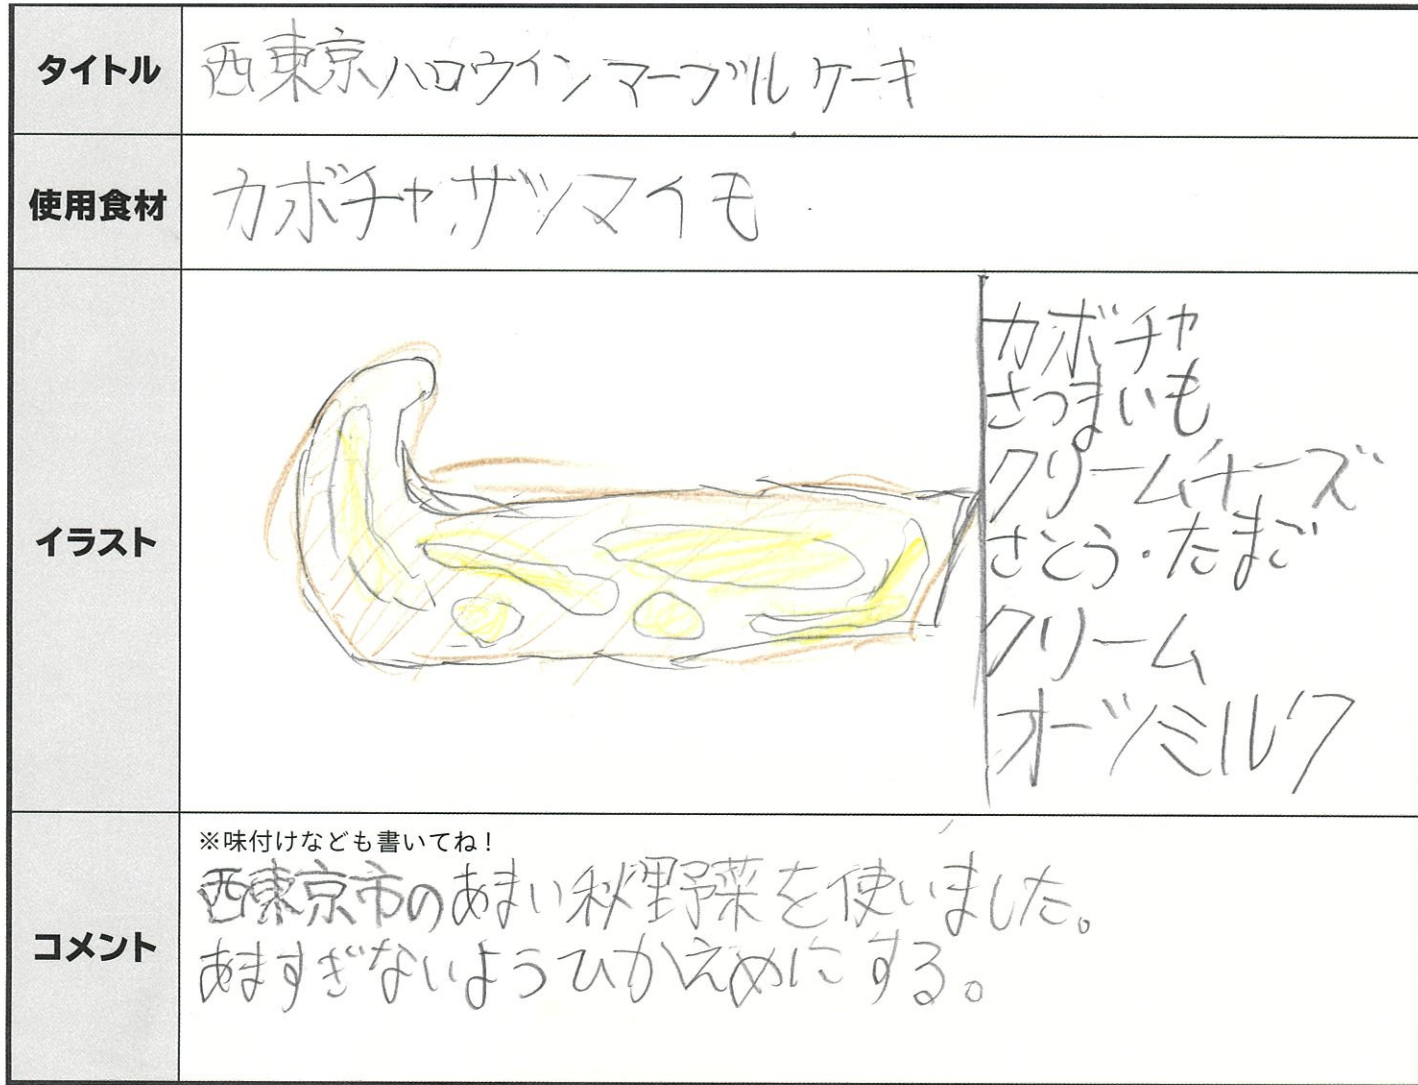 タイトル
西東京ハロウインマーブルケーキ
使用食材
カボチャ、サツマイモ
イラスト
カボチャ
さつまいも
クリームチーズ
さとう・たまご
クリーム
オーツミルク
コメント
※味付けなども書いてね！
西東京市のあまい秋野菜を使いました。
あますぎないようひかえめにする。